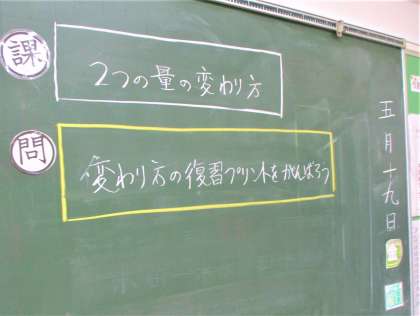 五月十九日
課
2つの量の変わり方
問
変わり方の復習プリントをがんばろう